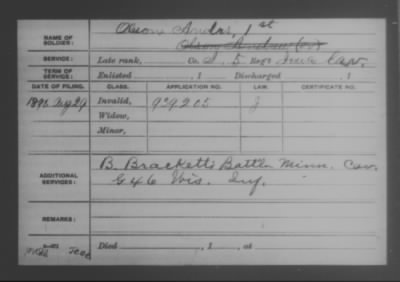 Olson Anders, 1st
NAME OF SOLDIER: Olson Andrew
SERVICE: Late rank, Co. I, 5 Reg't Iowa Cav.
TERM OF SERVICE: Enlisted , 1 Discharged , 1
DATE OF FILING. CLASS. APPLICATION NO. LAW. CERTIFICATE NO.
1890 Aug 29 Invalid, 929205 J
Widow,
Minor,
B. Brackett's Battln Minn. Cav.
ADDITIONAL SERVICES: G 46 Wis. Inf.
REMARKS:
Died , 1 , at